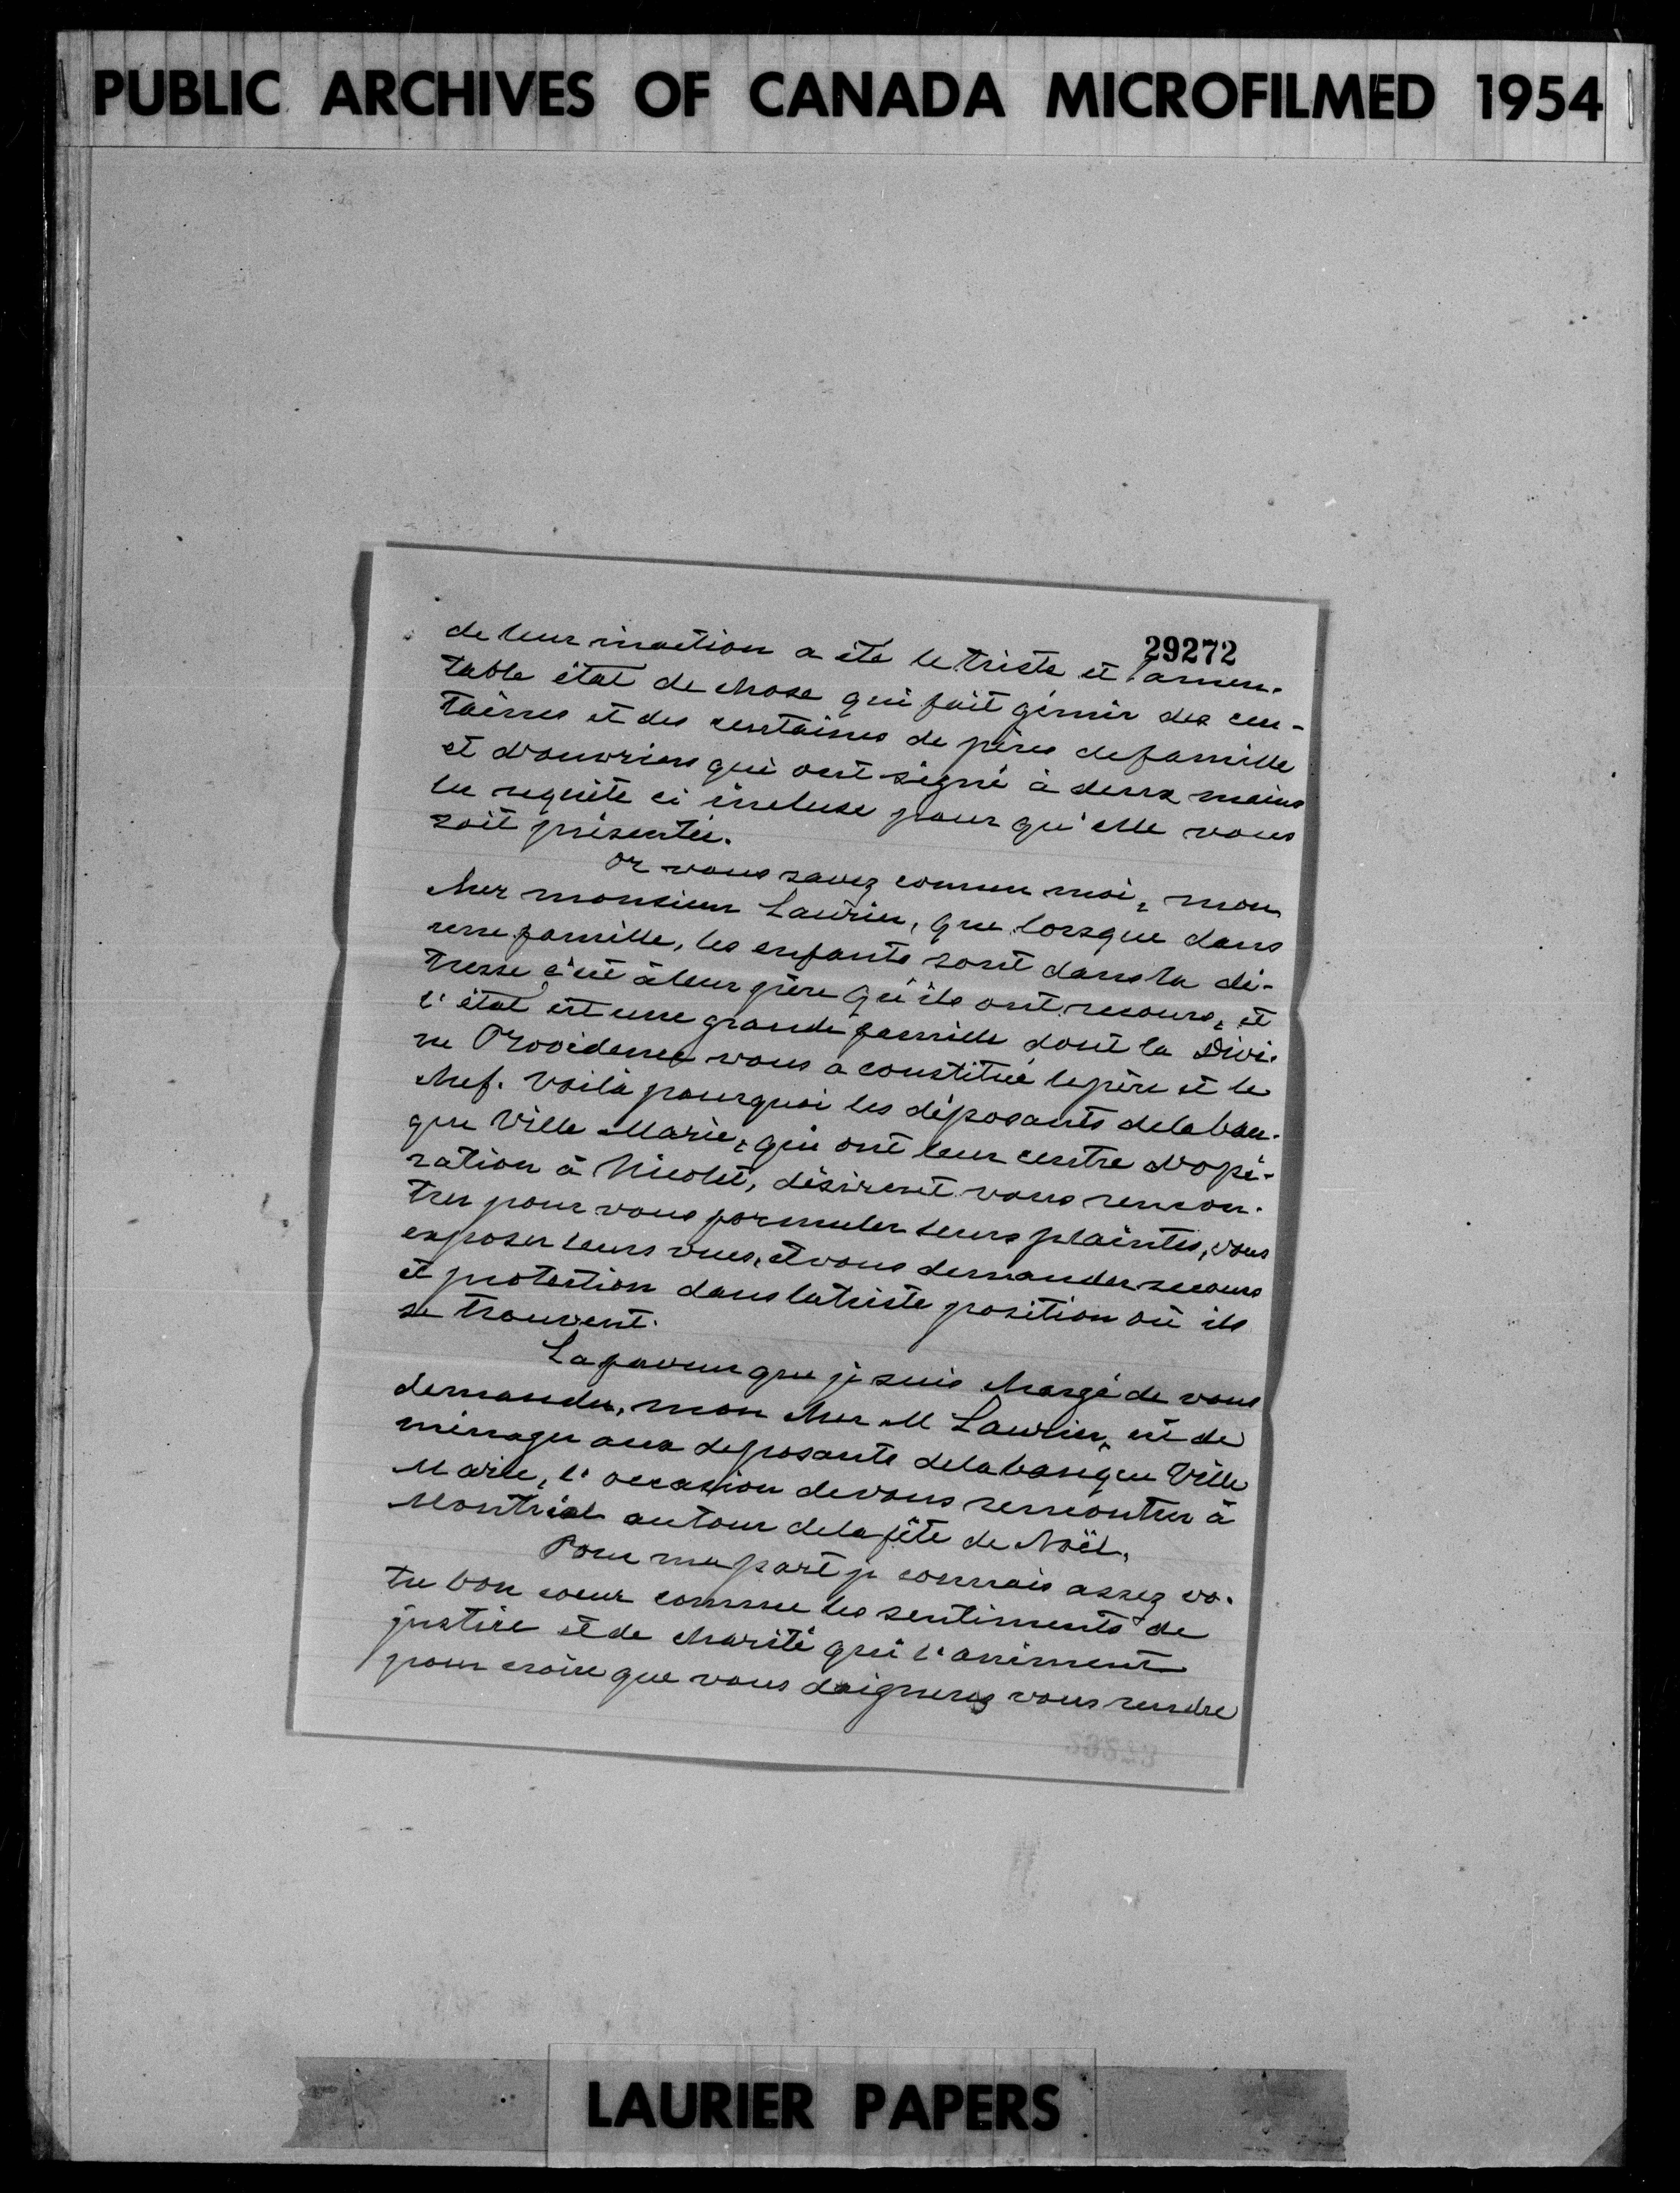 PUBLIC ARCHIVES OF CANADA MICROFILMED 1954
29272
de leur inaction a été le triste et lamen-
table état de chose qui fait gémir des cen-
taines et des centaines de pères de famille
et d'ouvriers qui ont signé à deux mains
la requête ci incluse pour qu'elle vous
soit présentée.
Or vous savez comme moi, mon
cher monsieur Laurier, que lorsque dans
une famille, les enfants sont dans la dé-
tresse c'est à leur père qu'ils ont recours, et
l'état est une grande famille dont la Divi-
ne Providence vous a constitué le père et le
chef. Voilà pourquoi les déposants de la ban-
que Ville Marie, qui ont leur centre d'opé-
ration à Nicolet, désirent vous rencon-
trer pour vous formuler leurs plaintes, vous
exposer leurs vues, et vous demander secours
et protection dans la triste position où ils
se trouvent.
La faveur que je suis chargé de vous
demander, mon cher M Laurier, est de
ménager aux deposants de la banque Ville
Marie, l'occasion de vous rencontrer à
Montréal autour de la fête de Noël.
Pour ma part je connais assez vo-
tre bon coeur comme les sentiments de
justice et de charité qui l'animent
pour croire que vous daignerez vous rendre
LAURIER PAPERS